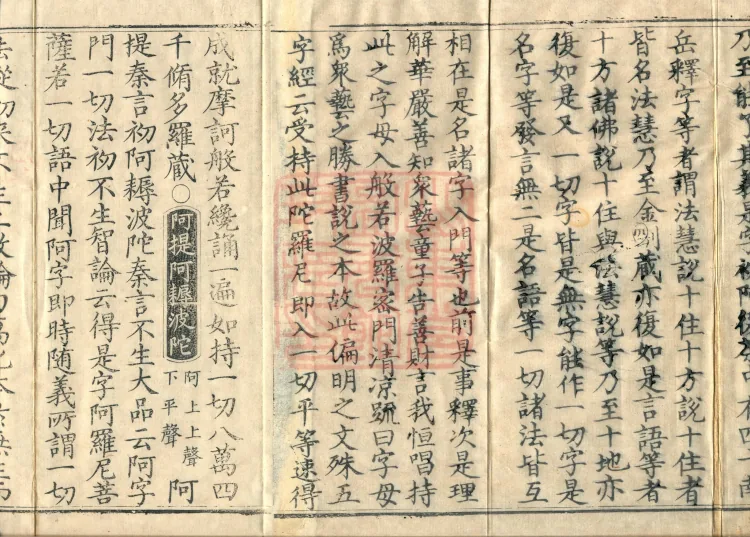 岳釋字等者謂法慧說十住十方說十住者
皆名法慧乃至金剛藏亦復如是言語等者
十方諸佛說十住與法慧說等乃至十地亦
復如是又一切字皆是無字能作一切字是
名字等發言無二是名語等一切諸法皆互
相在是名諸字入門等也前是事釋次是理
解華嚴善知眾藝童子告善財言我恒唱持
此之字母入般若波羅蜜門清凉䟽曰字母
爲眾藝之勝書說之本故此偏明之文殊五
字經云受持此陀羅尼即入一切平等速得
成就摩訶般若纔誦一遍如持一切八萬四
千脩多羅藏○阿提阿耨波陀 阿上上聲下平聲 阿
提秦言初阿耨波陀秦言不生大品云阿字
門一切法初不生智論云得是字阿羅尼菩
薩若一切語中聞阿字即時随義所謂一切